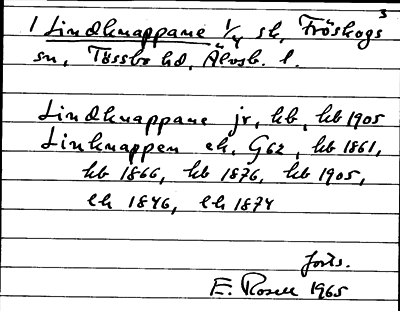 3
1 Lindknappane 1/4 sk, Fröskogs
sn, Tössbo hd, Älvsb. l.
Lindknappane jr, hb, hb 1905
Linknappen ek, G62, hb 1861,
hb 1866, hb 1876, hb 1905,
lh 1846, lh 1874
forts.
E. Rosell 1965